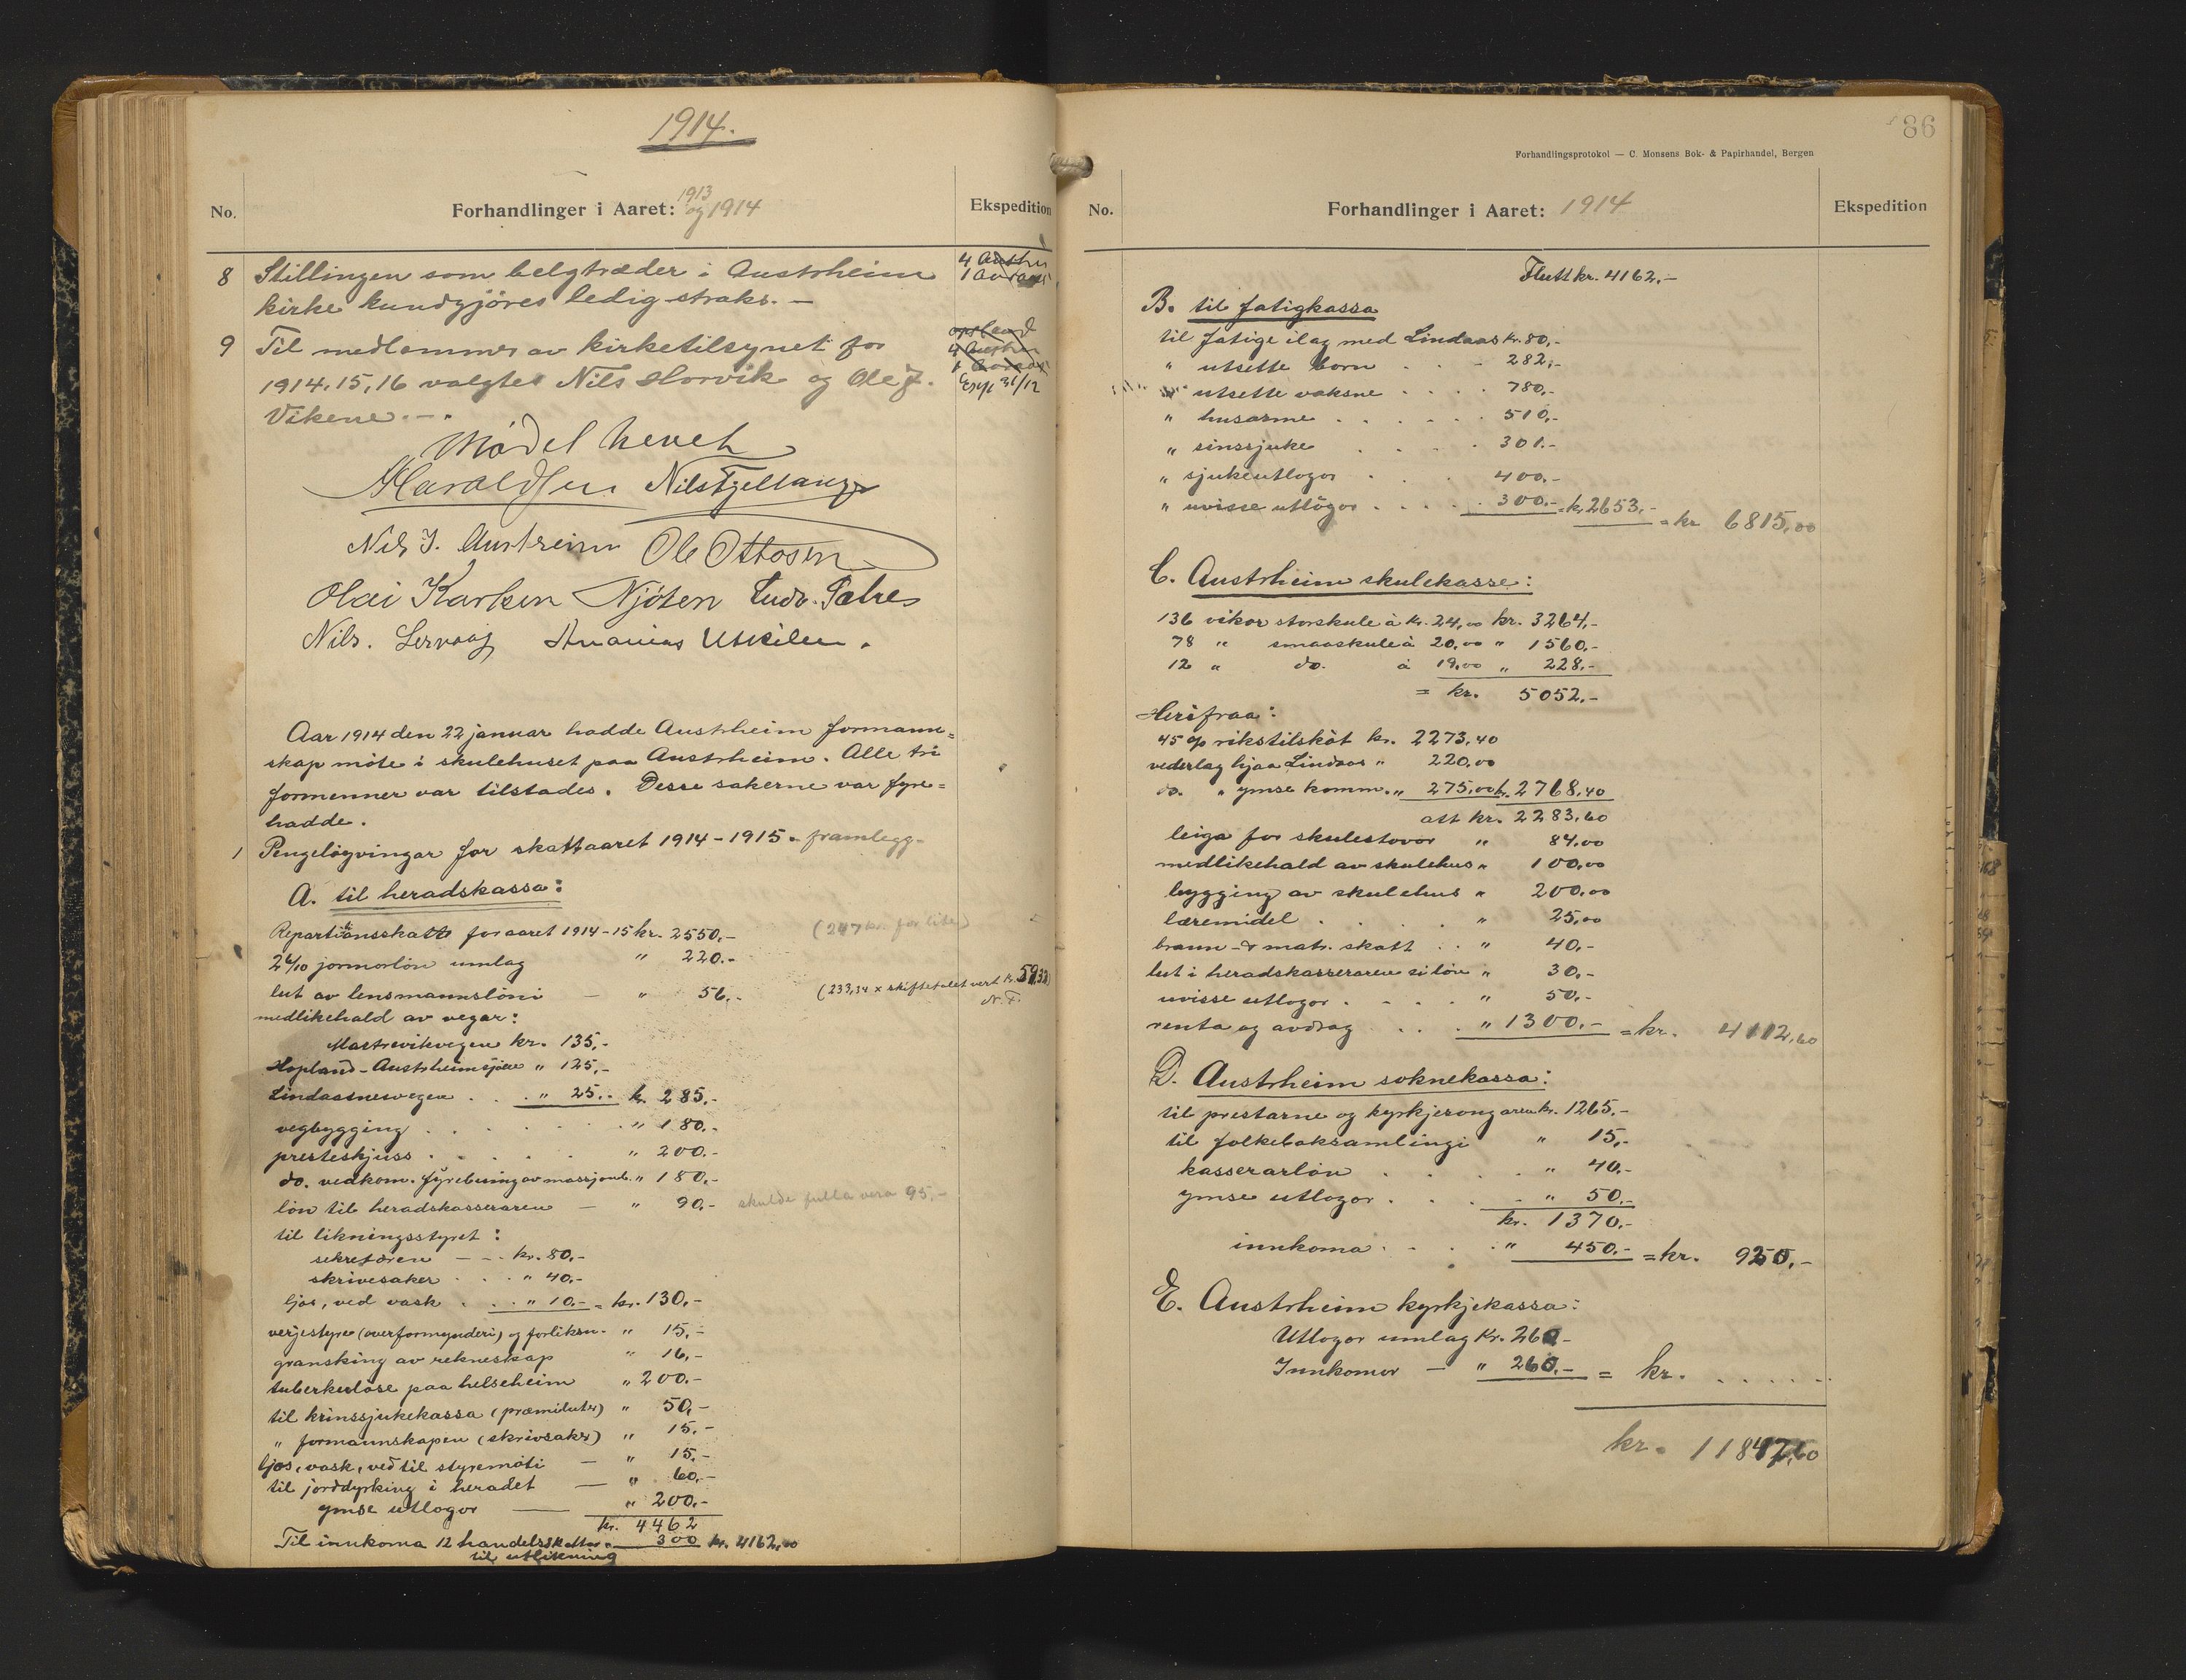 1914.
No.
Forhandlinger i Aaret: 1913 og 1914
Ekspedition
8 Stillingen som belgtræder i Austrheim
kirke kundgjöres ledig straks. –
9 Til medlemmer av kirketilsynet for
1914, 15, 16 valgtes Nils Horvik og Ole J.
Vikene. –
Exp 31/12
Mödet hevet
Haraldsen Nils Fjellanger
Nils J. Austreim Ole Ottosen
Olai Karlsen Njöten Ludv. Sætre
Nils. Lervaag Ananias Utkilen.
Aar 1914 den 22 januar hadde Austrheim formann=
skap möte i skulehuset paa Austrheim. Alle tri
formenner var tilstades. Desse sakerne var fyre=
hadde.
1 Pengelöyvingar for skattaaret 1914 – 1915. framlegg.
A. til heradskassa:
Repartitionsskatt for aaret 1914-15 kr. 2550,- (247 kr. for lite)
2 6/10 jormorlön umlag " 220.-
lut av lensmannslöni – " 56,- (233,34 x skiftetalet vert kr. 59,32)
N. F.
medlikehald av vegar:
Mastrevikvegen kr. 135,-
Hopland-Austrheimsjöen " 125,-
Lindaasnesvegen . . . " 25.- kr. 285,-
vegbygging . . . . . . " 180.-
presteskjuss . . . . . " 200.-
do. vedkom. fyrebuing av massjomb. " 180,-
lön til heradskasseraren – " 90,- skulde fulla vera 95,-
til likningsstyret:
sekretæren – – kr. 80,-
skrivesaker . . . " 40,-
ljos, ved vask . . . " 10,- = kr. 130,-
verjestyre (overformynderi) og forliksn. " 15,-
gransking av rekneskap " 16,-
tuberkulöse paa helseheim " 200.-
til krinssjukekassa (præmiluter) " 50,-
" formannskapen (skrivsaker) " 15.-
ljos, vask, ved til styremöti – " 15,-
til jorddyrking i heradet – " 60,-
ymse utlogor — " 200,-
kr. 4462
Til innkoma 12 handelsskattar " 300 kr. 4162,00
til utlikning
86
Forhandlingsprotokol — C. Monsens Bok- & Papirhandel, Bergen
No.
Forhandlinger i Aaret: 1914
Ekspedition
Flutt kr. 4162.-
B. til fatigkassa
til fatige ilag med Lindaas kr. 80,-
" utsette born . . - 282,-
" utsette vaksne . . . . 780,-
" husarme . . . . . 510,-
" sinssjuke . . . . 301.-
" sjukeutlogor . . . 400.-
" uvisse utlögor . . . . . 300.- = kr. 2653,- = kr 6815,00
C. Austrheim skulekasse:
136 vikor storskule à kr. 24,00 kr. 3264,-
78 " smaaskule à 20,00 " 1560.-
12 " do. à 19,00 " 228,-
= kr. 5052,-
Herifraa:
45 % rikstilsköt kr. 2273,40
vederlag hjaa Lindaas " 220,00
do. " ymse komm. " 275,00 kr. 2768,40
att kr. 2283,60
leiga for skulestovor " 84,00
medlikehald av skulehus " 100,00
bygging av skulehus " 200,00
læremidel . . . . " 25,00
brann- & matr. skatt . . " 40,-
lut i heradskasseraren si lön " 30,-
uvisse utlogor . . . . " 50,-
renta og avdrag . . . . " 1300.- = kr. 4112,60
D. Austrheim soknekassa:
til prestarne og kyrkjesongaren kr. 1265,-
til folkeboksamlingi " 15,-
kasserarlön . . . . " 40,-
ymse utlogor . . . . " 50.-
kr. 1370,-
innkoma . . . . " 450,- = kr. 920,-
E. Austrheim kyrkjekassa:
Utlogor umlag kr. 260-
Innkomer — " 260,- = kr. . . . . .
kr. 11847,60